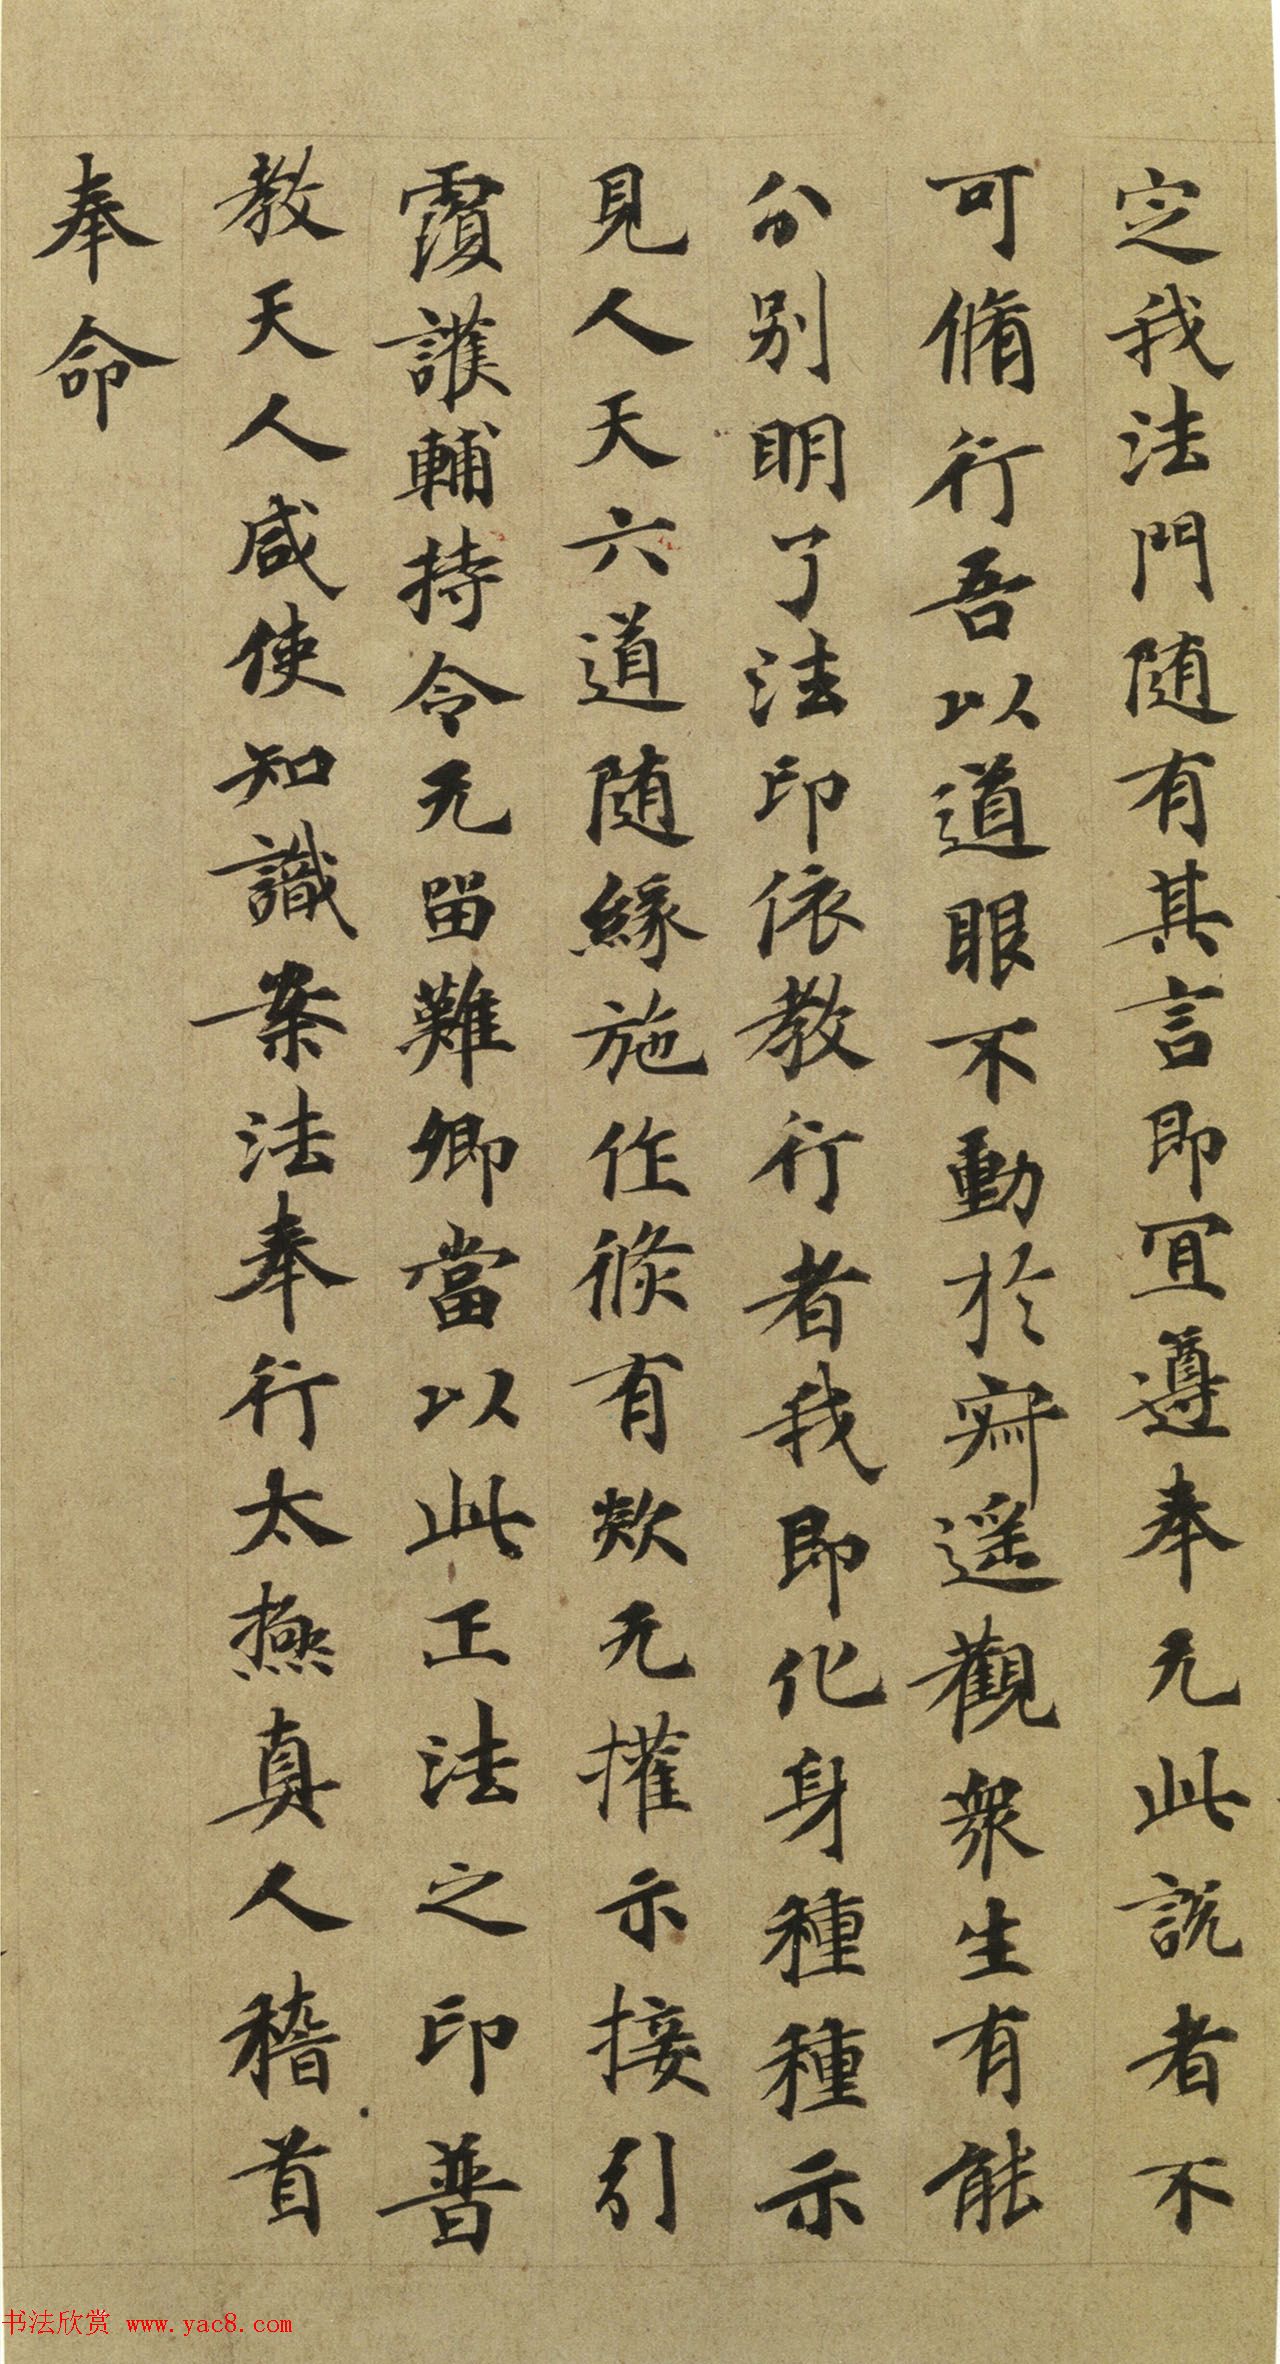 定我法門随有其言即冝遵奉无此説者不
可脩行吾以道眼不動於寂遥觀衆生有能
分别明了法印依教行者我即化身種種示
見人天六道随緣施作倏有欻无權示接引
覆護輔持令无留難卿當以此正法之印普
教天人咸使知識案法奉行太極真人稽首
奉命
书法欣赏 www.yac8.com